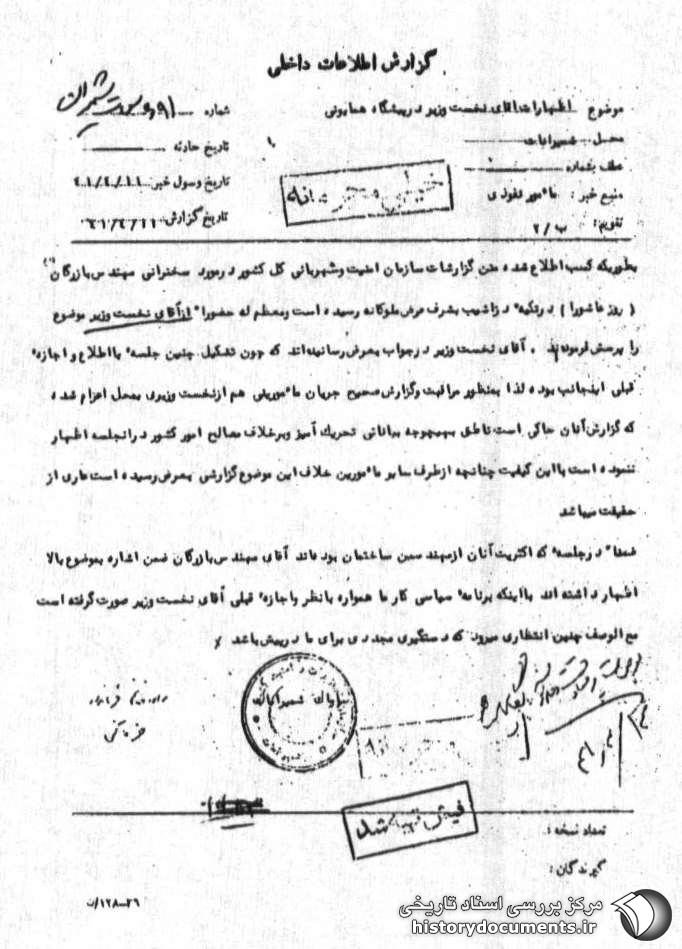 گزارش اطلاعات داخلی
موضوع اظهارات آقای نخست وزیر در پیشگاه همایونی
شماره
محل شمیرانات
تاریخ حادثه
عطف بشماره
تاریخ وصول خبر ۴۱/۴/۱۱
منبع خبر : مأمور نفوذی
تاریخ گزارش ۴۱/۴/۱۱
تقویم : ب/۲
خیلی محرمانه
بطوریکه کسب اطلاع شده متن گزارشات سازمان امنیت و شهربانی کل کشور در مورد سخنرانی مهندس بازرگان
( روز عاشورا ) در تکیه دزاشیب بشرف عرض ملوکانه رسیده است و معظم له حضورا" از آقای نخست وزیر موضوع
را پرسش فرموده‌اند . آقای نخست وزیر در جواب بعرض رسانیده‌اند که چون تشکیل چنین جلسه با اطلاع و اجازه
قبلی اینجانب بوده لذا بمنظور مراقبت و گزارش صحیح جریان مأمورینی هم از نخست وزیری بمحل اعزام شده
که گزارش آنان حاکی است ناطق بهیچوجه بیاناتی تحریک آمیز و برخلاف مصالح امور کشور در آنجلسه اظهار
ننموده است با این کیفیت چنانچه از طرف سایر مأمورین خلاف این موضوع گزارشی بعرض رسیده است عاری از
حقیقت میباشد
ضمنا" در جلسه که اکثریت آنان از مهندسین ساختمان بوده‌اند آقای مهندس بازرگان ضمن اشاره بموضوع بالا
اظهار داشته اند با اینکه برنامه سیاسی کار ما همواره با نظر و اجازه قبلی آقای نخست وزیر صورت گرفته است
مع الوصف چنین انتظاری میرود که دستگیری مجددی برای ما در پیش باشد
ساواک شمیرانات
فیش تهیه شد
تعداد نسخه :
گیرندگان :
۲۶-۱۲۸/ت
مرکز بررسی اسناد تاریخی
historydocuments.ir